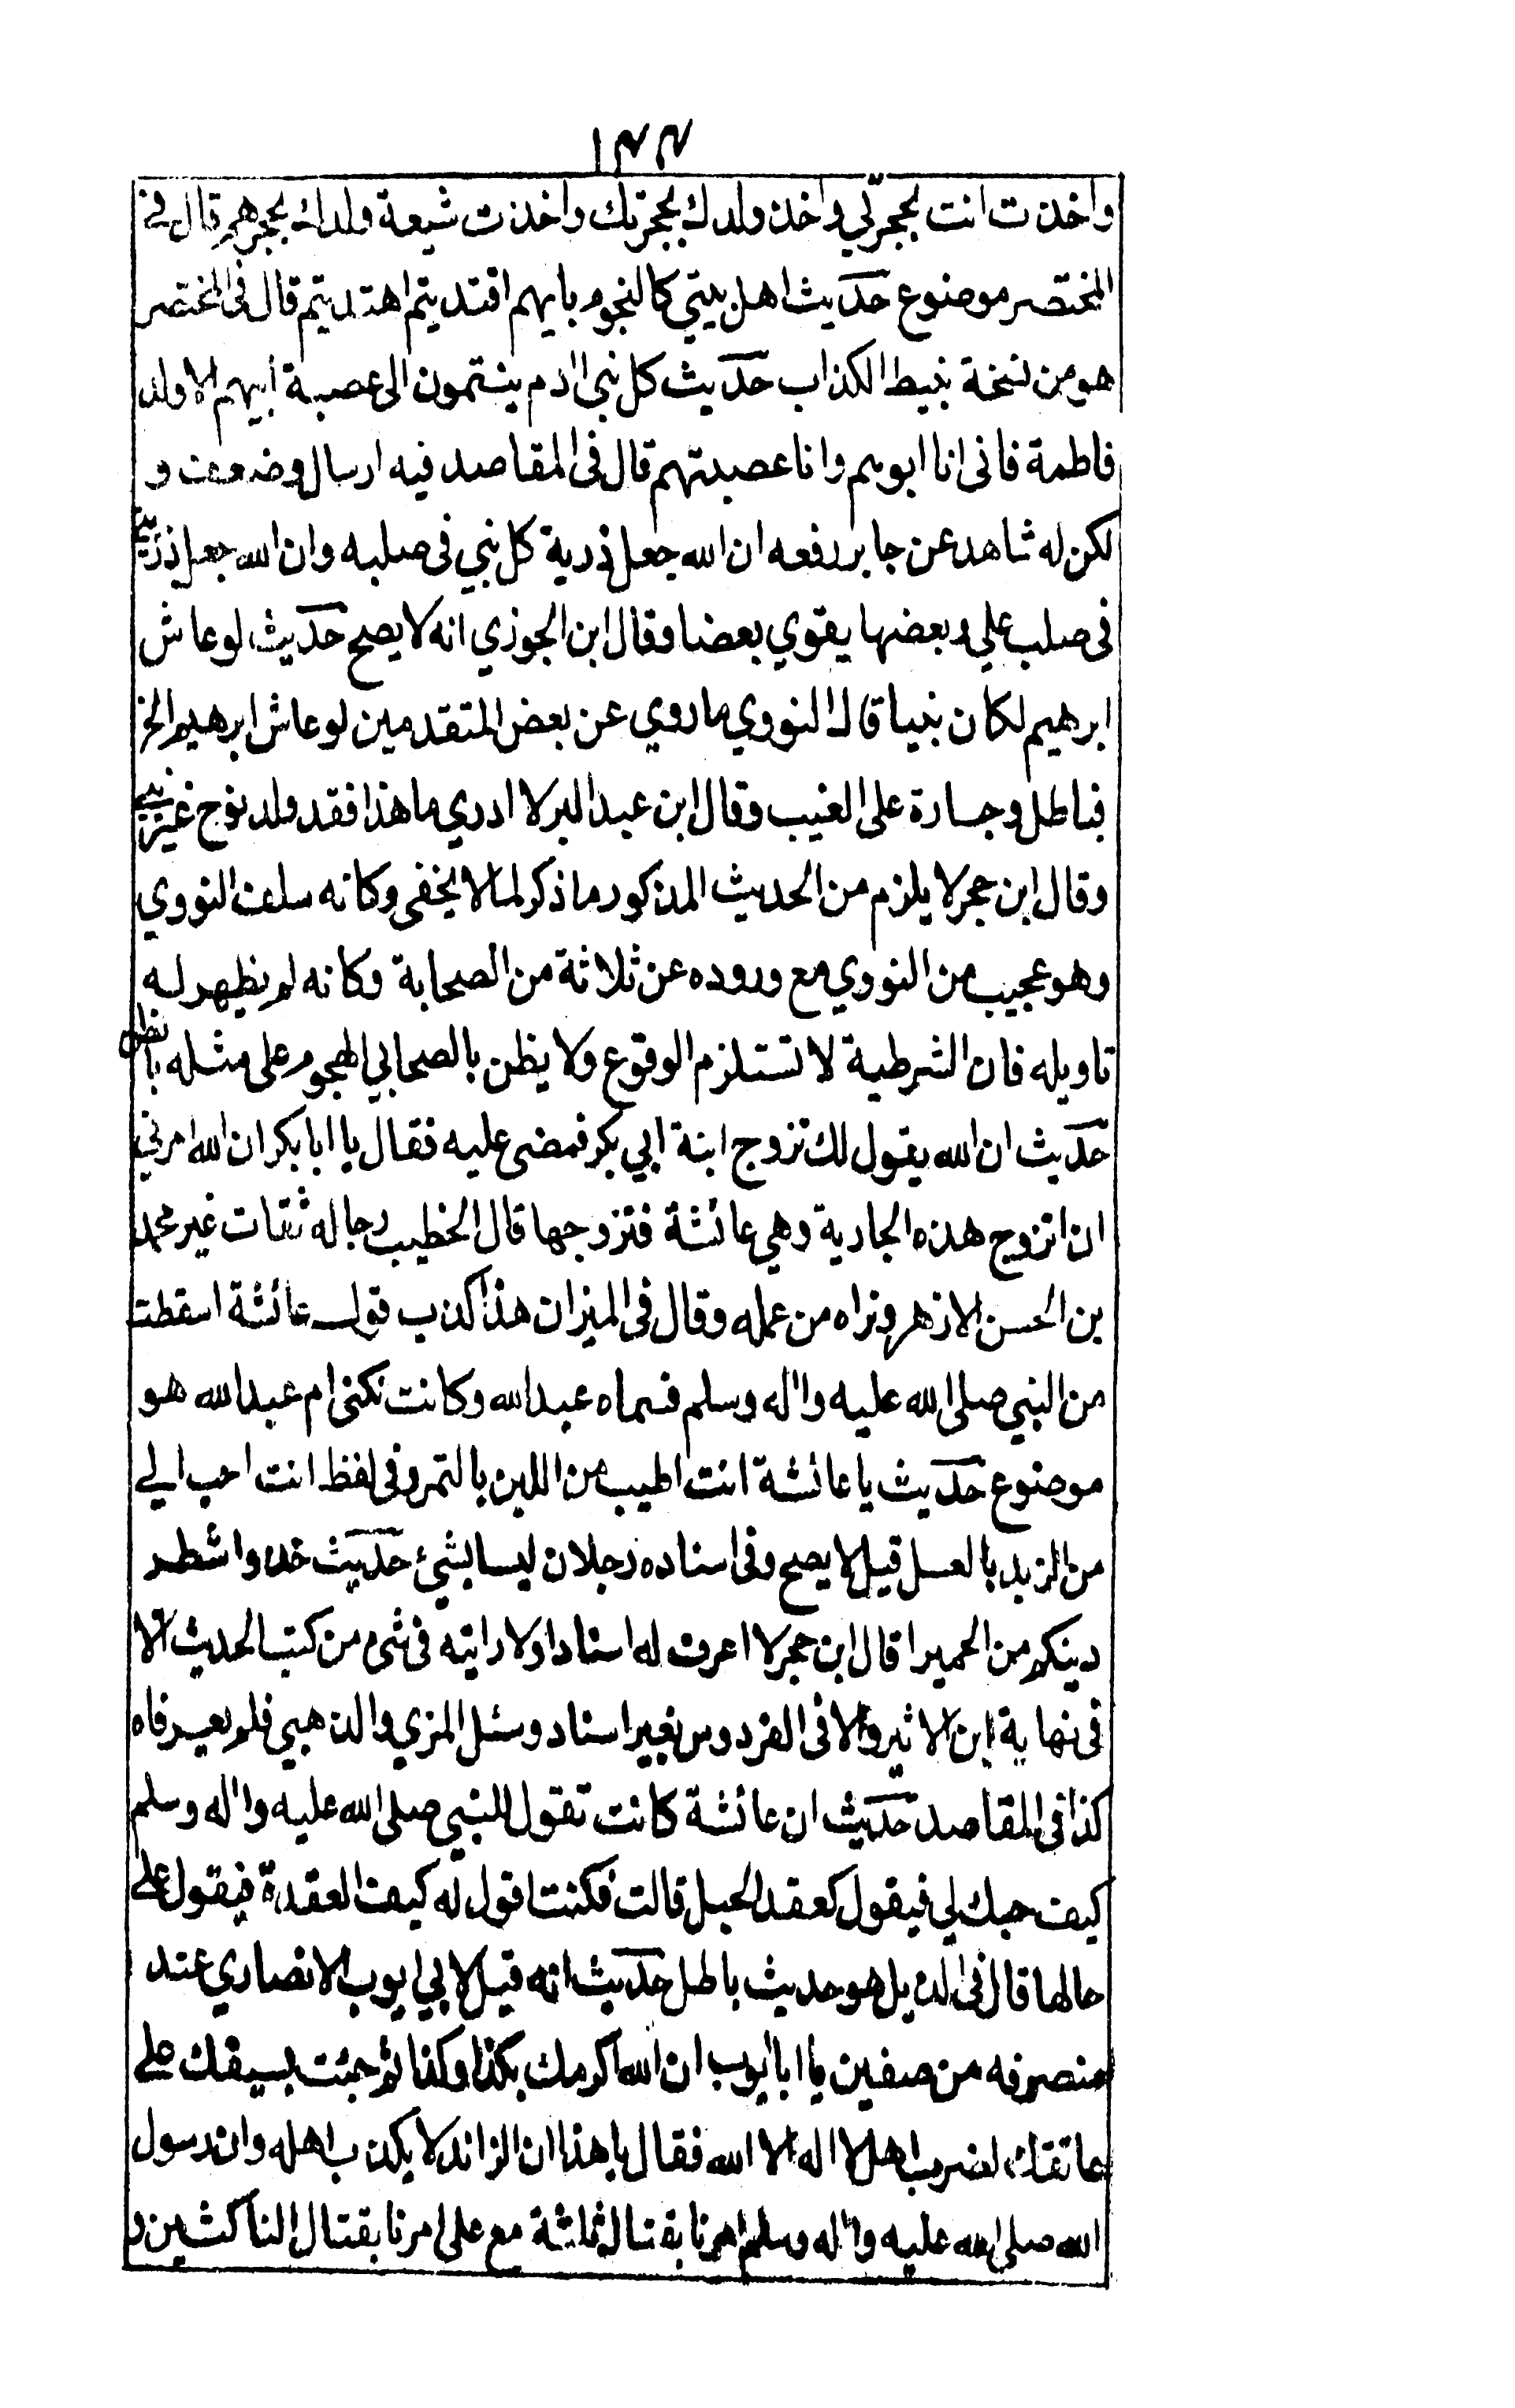 ١٣٣
واخذت انت بحجزتي واخذ ولدك بحجزتك واخذت شيعة ولدك بحجزهم قال في
المختصر موضوع حديث اهل بيتي كالنجوم بايهم اقتديتم اهتديتم قال فى المختصر
هو من نسخة نبيط الكذاب حديث كل بنى اادم ينتمون الى عصبة ابيهم الا ولد
فاطمة فانى انا ابوهم وانا عصبتهم قال فى المقاصد فيه ارسال وضعف و
لكن له شاهد عن جابر رفعه ان الله جعل ذرية كل نبي فى صلبه وان الله جعل ذريتي
فى صلب علي وبعضها يقوي بعضا وقال ابن الجوزي انه لا يصح حديث لو عاش
ابرهيم لكان نبيا قال النووي ما روي عن بعض المتقدمين لو عاش ابرهيم الخ
فباطل وجسارة على الغيب وقال ابن عبد البر لا ادري ما هذا فقد ولد نوح غير نبي
وقال ابن حجر لا يلزم من الحديث المذكور ما ذكر لما لا يخفى وكانه سلف النووي
وهو عجيب من النووي مع وروده عن ثلاثة من الصحابة وكانه لم يظهر له
تاويله فان الشرطية لا تستلزم الوقوع ولا يظن بالصحابي الهجوم على مثله بالظن
حديث ان الله يقول لك تزوج ابنة ابي بكر فمضى عليه فقال يا ابا بكر ان الله امرني
ان اتزوج هذه الجارية وهي عائشة فتزوجها قال الخطيب رجاله ثقات غير محمد
بن الحسن الازهر ونراه من عمله وقال فى الميزان هذا كذب قول عائشة اسقطت
من النبي صلى الله عليه واله وسلم فسماه عبد الله وكانت تكنى ام عبد الله هو
موضوع حديث يا عائشة انت اطيب من اللبن بالتمر وفى لفظ انت احب الي
من الزبد بالعسل قيل لا يصح وفى اسناده رجلان ليسا بشئ حديث خذوا شطر
دينكم من الحميرا قال ابن حجر لا اعرف له اسنادا ولا رايته فى شئ من كتب الحديث الا
فى نهاية ابن الاثير والا فى الفردوس بغير اسناد وسئل المزي والذهبي فلم يعرفاه
كذا فى المقاصد حديث ان عائشة كانت تقول للنبي صلى الله عليه واله وسلم
كيف حبك لي فيقول كعقد الحبل قالت فكنت اقول له كيف العقدة فيقول على
حالها قال فى الذيل هو حديث باطل حديث انه قيل لابي ايوب الانصاري عند
منصرفه من صفين يا ابا ايوب ان الله اكرمك بكذا وكذا ثم جئت بسيفك على
عاتقك لضرب اهل لا اله الا الله فقال يا هذا ان الرائد لا يكذب اهله وان رسول
الله صلى الله عليه واله وسلم امرنا بقتال ثلثة مع على امرنا بقتال الناكثين و